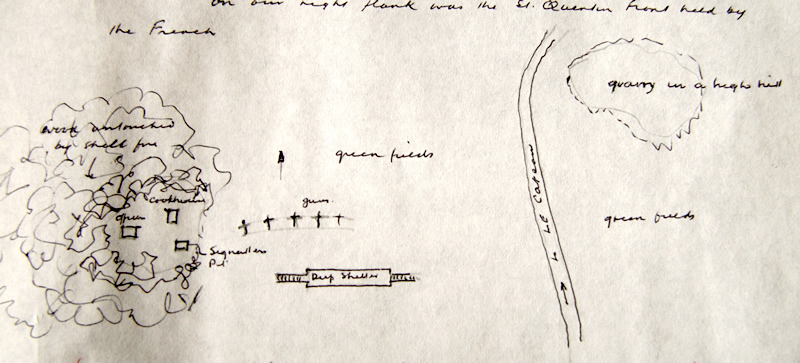 on our right flank was the St. Quentin front held by
the French
quarry in a high hill
wood untouched
by shell fire
green fields
Cookhouse
guns
green fields
Signallers
Deep Shelter
to Le Cateau